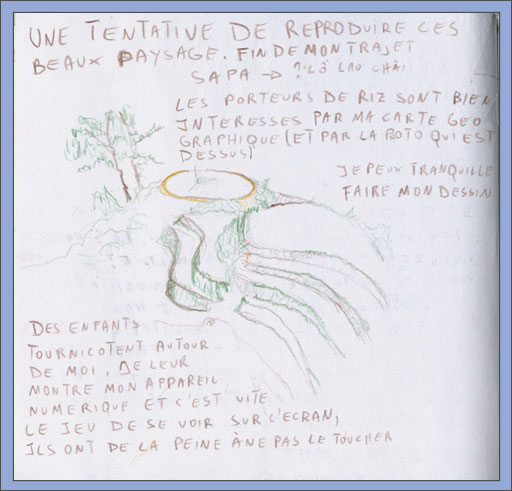 UNE TENTATIVE DE REPRODUIRE CES
BEAUX PAYSAGE. FIN DE MON TRAJET
SAPA → ? LÔ LAO CHẢI
LES PORTEURS DE RIZ SONT BIEN
INTERESSES PAR MA CARTE GEO-
GRAPHIQUE (ET PAR LA ROTO QUI EST
DESSUS)
JE PEUX TRANQUILLE
FAIRE MON DESSIN
DES ENFANTS
TOURNICOTENT AUTOUR
DE MOI, JE LEUR
MONTRE MON APPAREIL
NUMERIQUE ET C'EST VITE
LE JEU DE SE VOIR SUR L'ECRAN,
ILS ONT DE LA PEINE À NE PAS LE TOUCHER